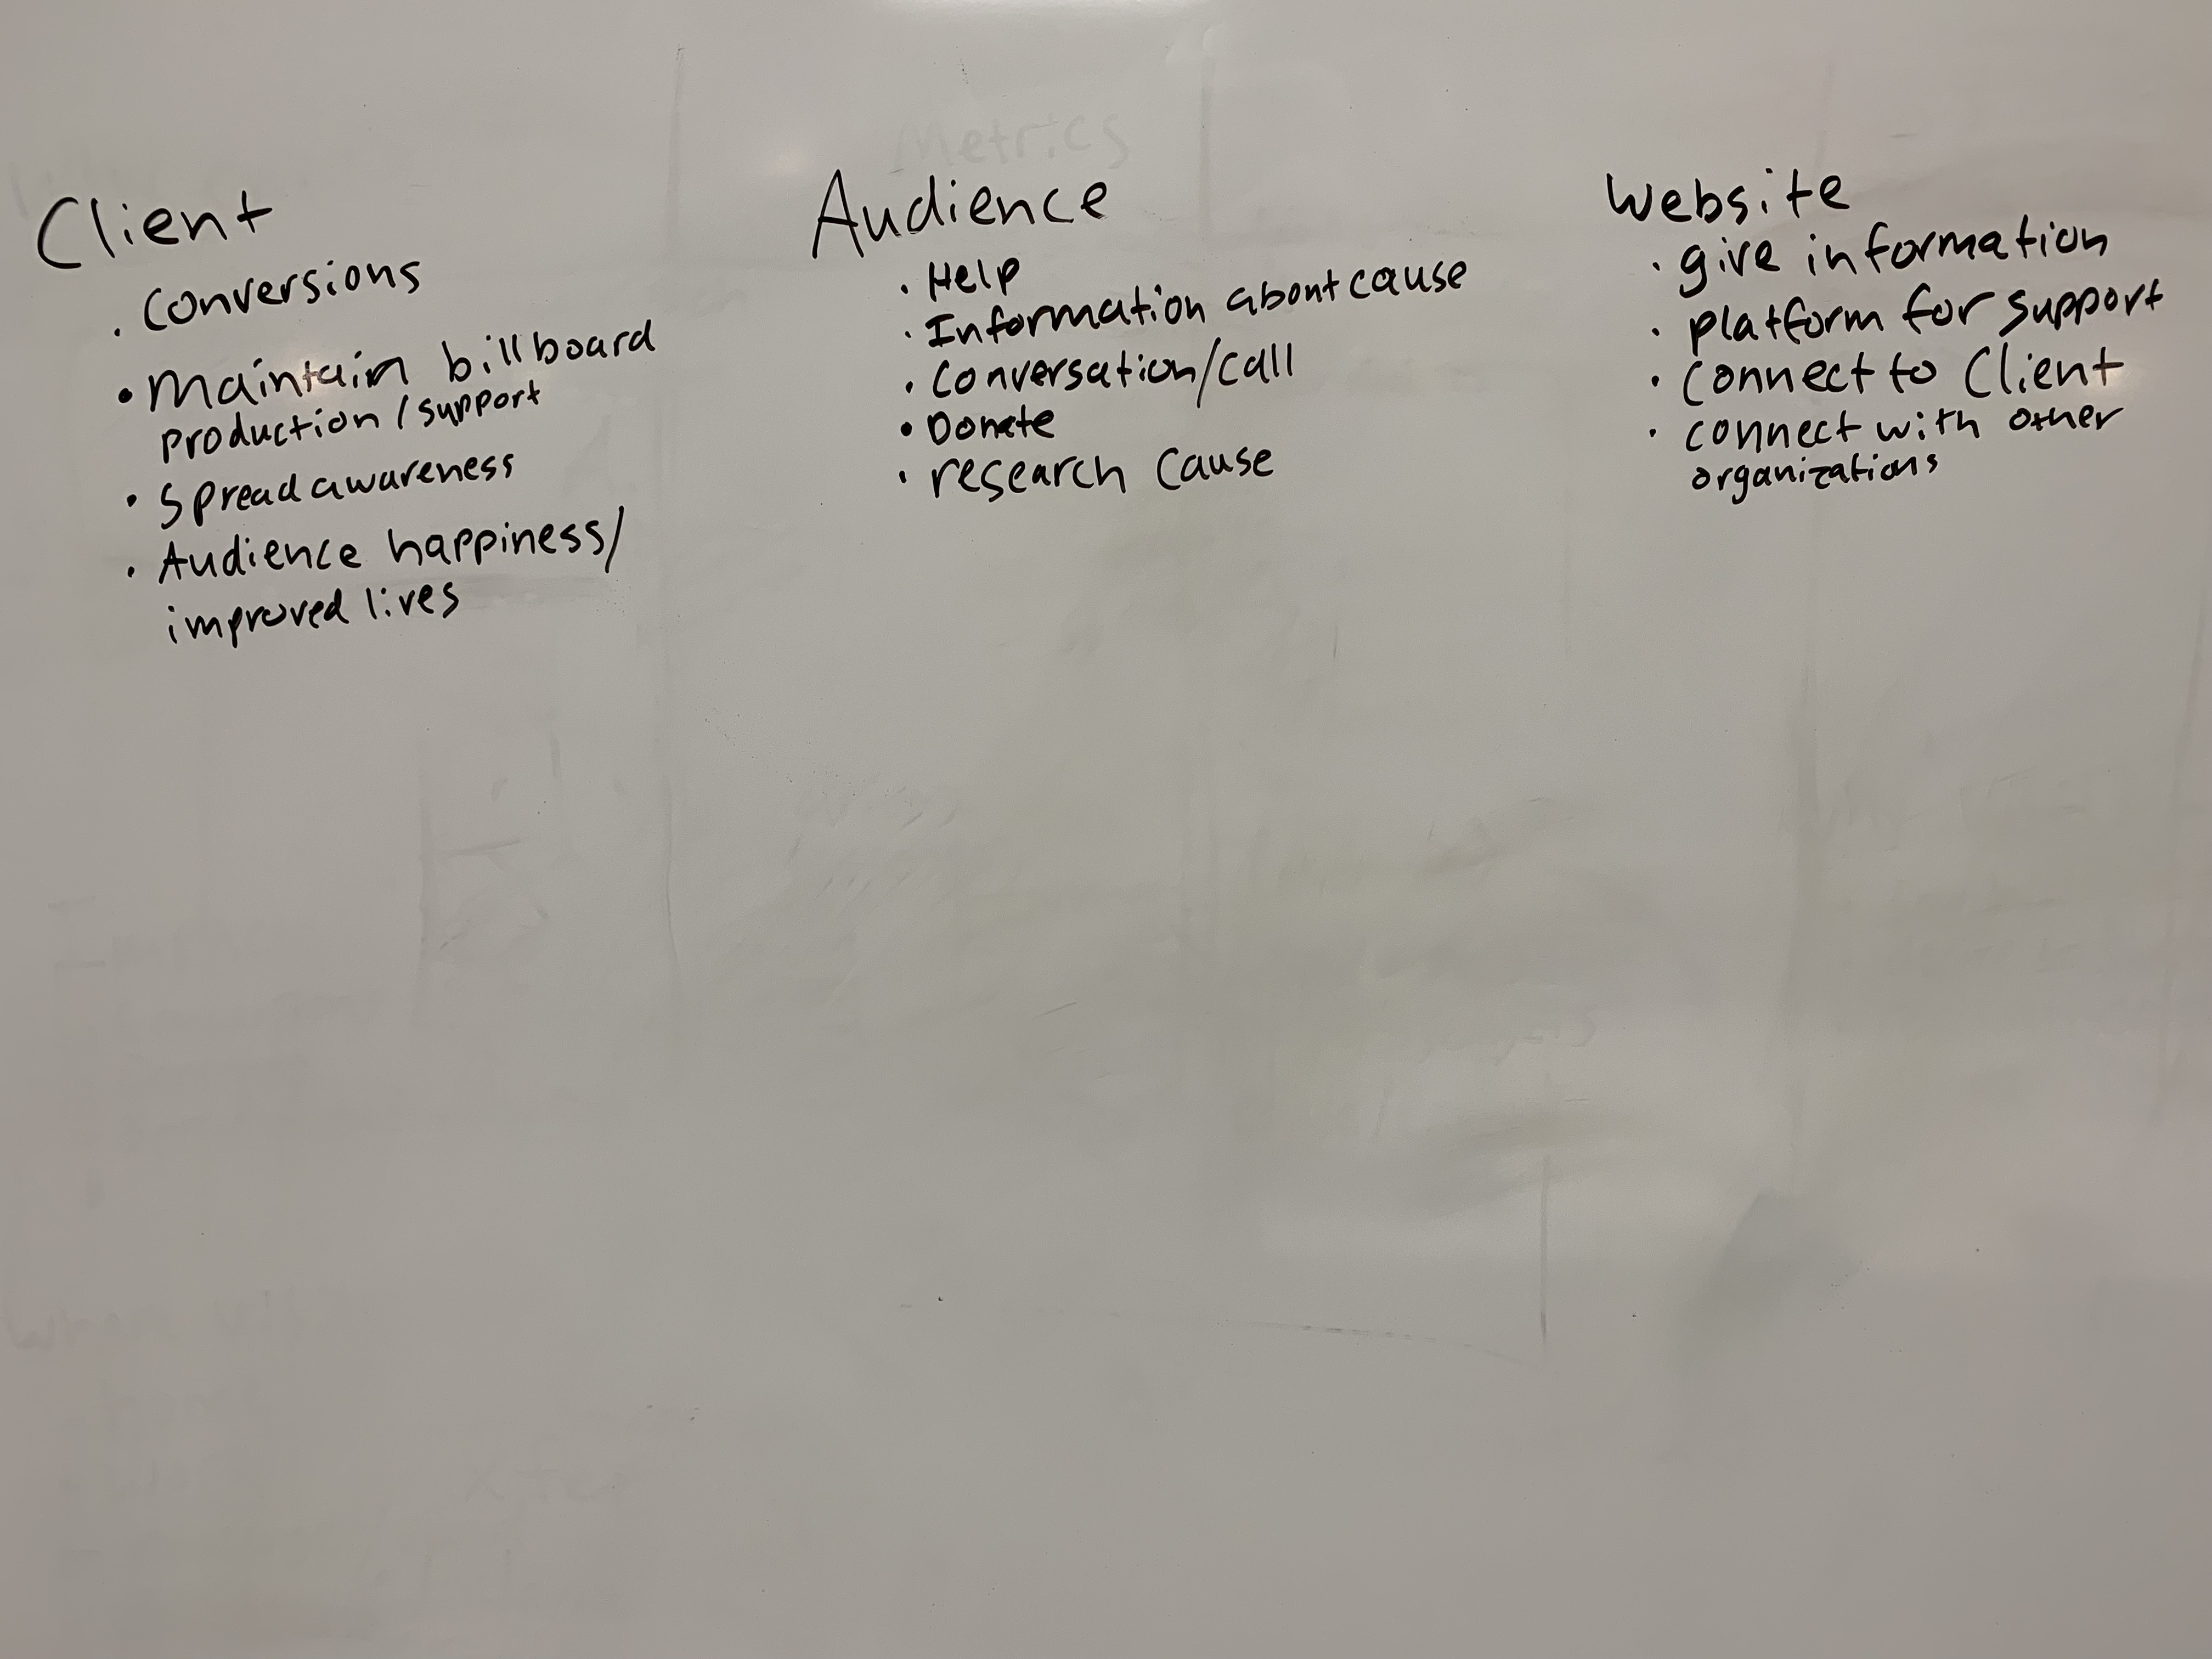 Metrics
Client
• Conversions
• Maintain billboard
production / support
• Spread awareness
• Audience happiness/
improved lives
Audience
• Help
• Information about cause
• Conversation/call
• Donate
• research cause
Website
• give information
• platform for support
• Connect to Client
• connect with other
organizations